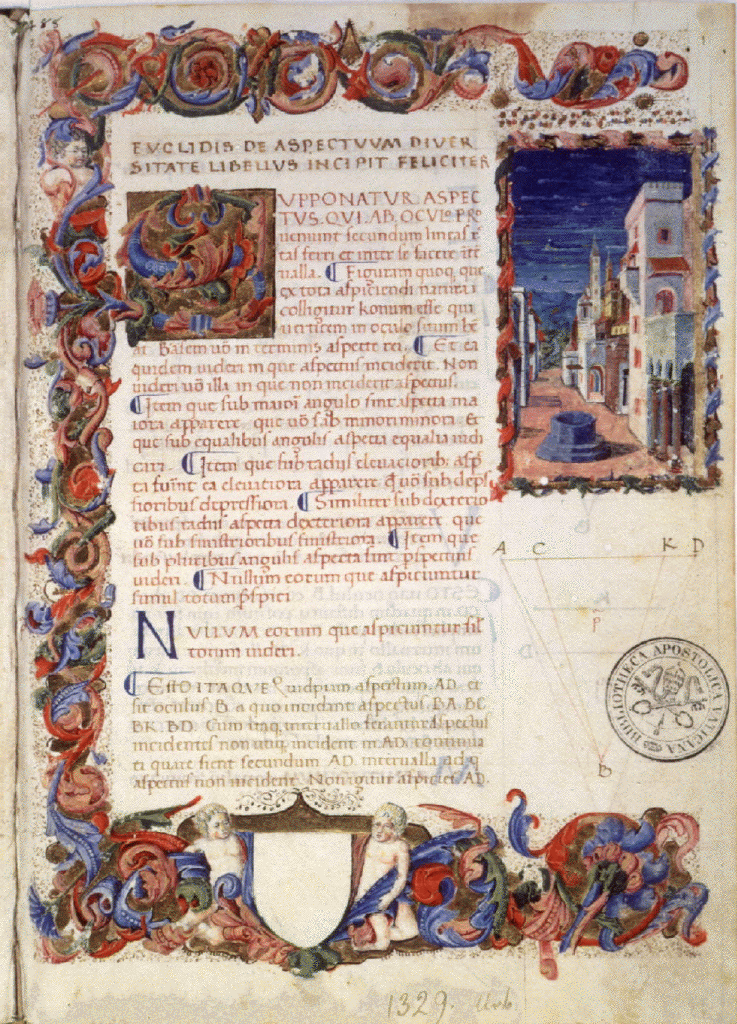 EVCLIDIS DE ASPECTVVM DIVER
SITATE LIBELLVS INCIPIT FELICITER
SVPPONATVR ASPEC
TVS. QVI. AB. OCVLO. PRO
ueniunt secundum lineas
tas ferri et inter se facere
ualla. Figuram quoq que
ex tota aspiciendi natura
colligitur konum esse qui
uerticem in oculo suum
at. Basem uõ in terminis aspecte rei. Et ea
quidem uideri in que aspectus inciderit. Non
uideri uõ illa in que non inciderit aspectus.
Item que sub maiori angulo sint aspecta ma
iora apparere. que uõ sub minori minora. Et
que sub equalibus angulis aspecta equalia uidi
Item que sub radiis eleuatiorib;
ti fuint ea eleuatiora apparere q uõ sub deps
sioribus depressiora. Similiter sub dexterio
ribus radiis aspecta dexteriora apparere que
uõ sub sinistrioribus sinistriora. Item que
sub pluribus angulis aspecta sint pspectius
uideri. Nullum eorum que aspiciuntur
simul totum pspici
NVLLVM eorum que aspiciuntur sil
totum uideri.
ESTO ITAQVE quidpiam aspectum. AD. et
sit oculus. B. a quo incidant aspectus. BA. BC
BK. BD. Cum itaq interuallo ferantur aspectus
incidentes non utiq incident in AD. continua
et quare fient secundum AD. interualla ad q
aspectus non incident. Non igitur aspiciet AD.
A C K D
P
D
B
BIBLIOTHECA APOSTOLICA VATICANA
1329. Urb.